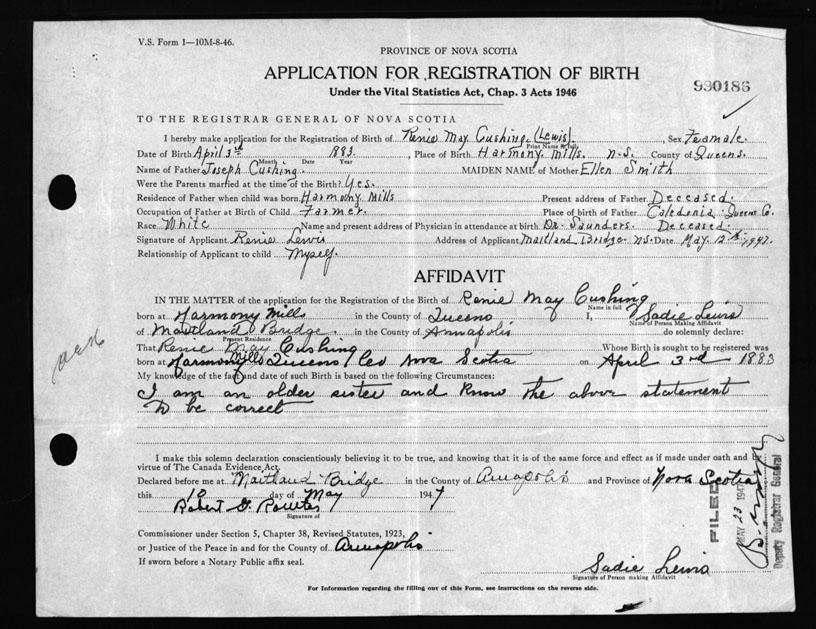 V.S. Form 1—10M-8-46.
PROVINCE OF NOVA SCOTIA
APPLICATION FOR REGISTRATION OF BIRTH
Under the Vital Statistics Act, Chap. 3 Acts 1946
930186
TO THE REGISTRAR GENERAL OF NOVA SCOTIA
I hereby make application for the Registration of Birth of Renie May Cushing. (Lewis). Sex Feamale.
Print Name in full
Date of Birth April 3rd 1883. , Place of Birth Harmony Mills. N.S. County of Queens.
Month Date Year
Name of Father Joseph Cushing. MAIDEN NAME of Mother Ellen Smith
Were the Parents married at the time of the Birth? Yes.
Residence of Father when child was born Harmony Mills Present address of Father Deceased.
Occupation of Father at Birth of Child Farmer. Place of birth of Father Caledonia Queens Co.
Race White Name and present address of Physician in attendance at birth Dr. Saunders. Deceased.
Signature of Applicant Renie Lewis Address of Applicant Maitland Bridge. NS. Date May. 12th 1947.
Relationship of Applicant to child Myself.
AFFIDAVIT
IN THE MATTER of the application for the Registration of the Birth of Renie May Cushing
Name in full
born at Harmony Mills in the County of Queens I, Sadie Lewis
Name of Person Making Affidavit
of Maitland Bridge. in the County of Annapolis do solemnly declare:
Present Residence
That Renie May Cushing Whose Birth is sought to be registered was
born at Harmony Mills Queens Co Nova Scotia on April 3rd 1883
My knowledge of the fact and date of such Birth is based on the following Circumstances:
I am an older sister and know the above statement
to be correct
I make this solemn declaration conscientiously believing it to be true, and knowing that it is of the same force and effect as if made under oath and
virtue of The Canada Evidence Act.
Declared before me at Maitland Bridge in the County of Annapolis and Province of Nova Scotia
this 10 day of May 1947
Robert G.
Signature of
Commissioner under Section 5, Chapter 38, Revised Statutes, 1923,
or Justice of the Peace in and for the County of Annapolis
If sworn before a Notary Public affix seal.
Sadie Lewis
Signature of Person making Affidavit
For Information regarding the filling out of this Form, see instructions on the reverse side.
FILED
MAY 23 1947
Deputy Registrar General